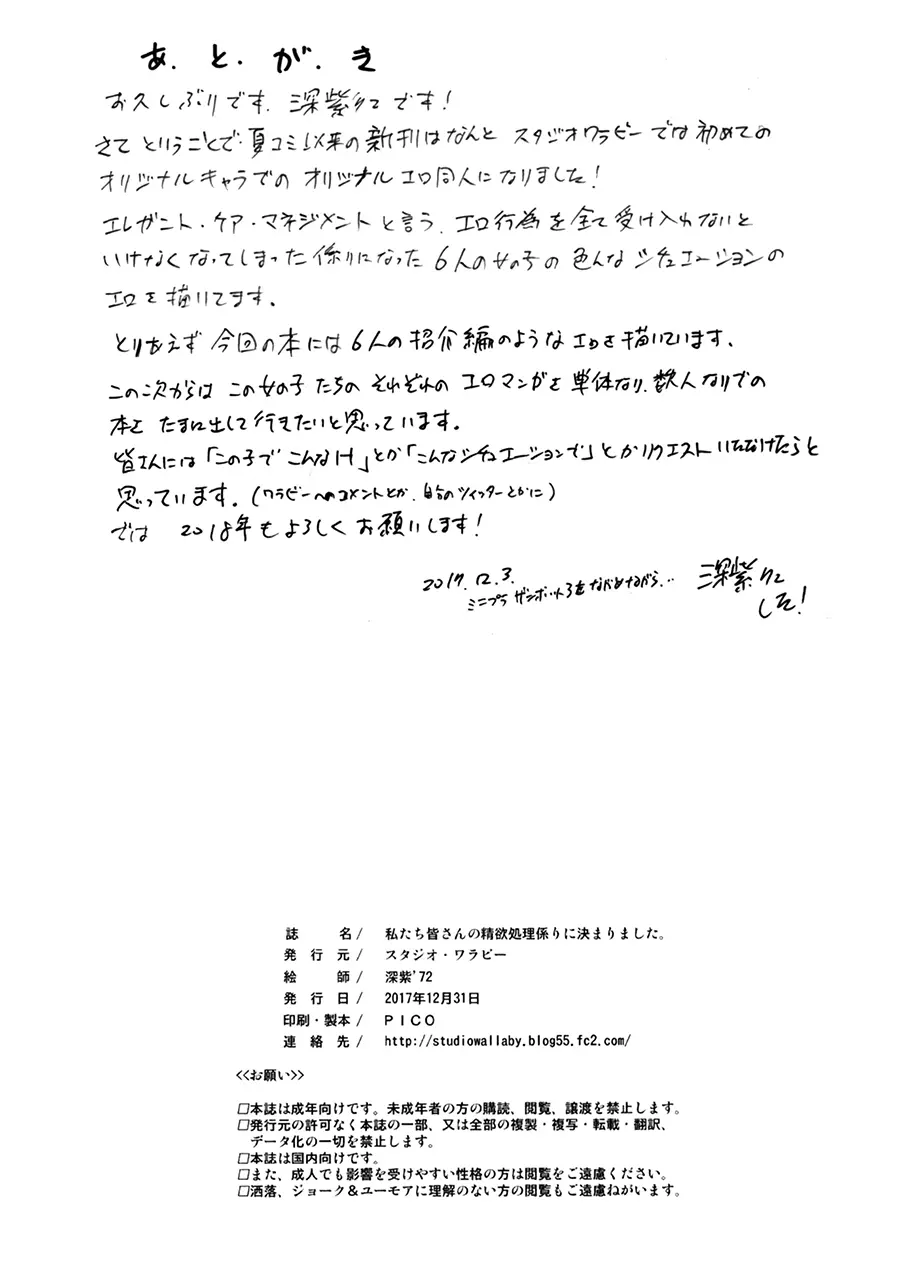 あ.と.が.き
お久しぶりです.深紫'72です!
さてということで.夏コミ以来の新刊はなんと スタジオワラビーでは初めての
オリジナルキャラでの オリジナルエロ同人になりました!
エレガント・ケア・マネジメントと言う.エロ行為を全て受け入れないと
いけなくなってしまった係りになった6人の女の子の色んなシチュエーションの
エロを描いてます.
とりあえず今回の本には6人の招介編のようなエロを描いています.
この次からはこの女の子たちのそれぞれのエロマンガを単体なり.数人なりでの
本を たまに出して行きたいと思っています.
皆さんには「この子でこんなH」とか「こんなシチュエーションで」とかリクエストいただけたらと
思っています.(ワラビーへのコメントとか.自分のツイッターとかに)
では 2018年もよろしくお願いします!
2017.12.3.
ミニプラ ザンボット3をながめながら...
深紫'72
した!
誌 名/ 私たち皆さんの精欲処理係りに決まりました。
発行元/ スタジオ・ワラビー
絵 師/ 深紫'72
発行日/ 2017年12月31日
印刷・製本/ PICO
連絡先/ http://studiowallaby.blog55.fc2.com/
<<お願い>>
□本誌は成年向けです。未成年者の方の購読、閲覧、譲渡を禁止します。
□発行元の許可なく本誌の一部、又は全部の複製・複写・転載・翻訳、
データ化の一切を禁止します。
□本誌は国内向けです。
□また、成人でも影響を受けやすい性格の方は閲覧をご遠慮ください。
□洒落、ジョーク＆ユーモアに理解のない方の閲覧もご遠慮ねがいます。